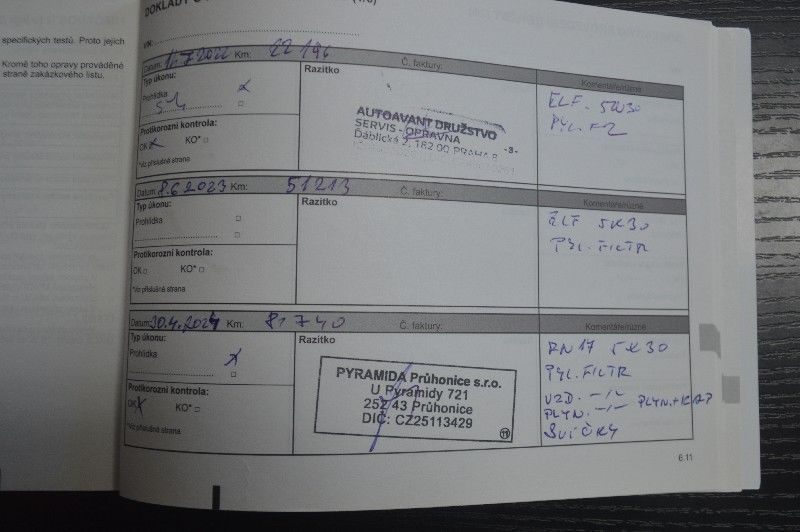 DOKLADY O
specifických testů. Proto jejich
Kromě toho opravy prováděné
straně zakázkového listu.
VIN:
Datum: 11.7.2022 Km: 22 196 Č. faktury: Komentáře/různé
Typ úkonu: Razítko
Prohlídka x
ELF - 5W30
PYL. FI
Protikorozní kontrola:
OK x KO* □
*Viz příslušná strana
AUTOAVANT DRUŽSTVO
SERVIS - OPRAVNA -3-
Ďáblická 2, 182 00 PRAHA 8
Datum 8.6.2023 Km: 51213 Č. faktury: Komentáře/různé
Typ úkonu: Razítko
Prohlídka □
ELF 5W30
PYL. FILTR
Protikorozní kontrola:
OK □ KO* □
*Viz příslušná strana
Datum: 30.4.2024 Km: 81740 Č. faktury: Komentáře/různé
Typ úkonu: Razítko
Prohlídka x
RN17 5W30
PYL. FILTR
VZD. -//-
PLYN. -//- PLYN.+KAP
SVÍČKY
Protikorozní kontrola:
OK x KO* □
*Viz příslušná strana
PYRAMIDA Průhonice s.r.o.
U Pyramidy 721
252 43 Průhonice
DIČ: CZ25113429
11
6.11